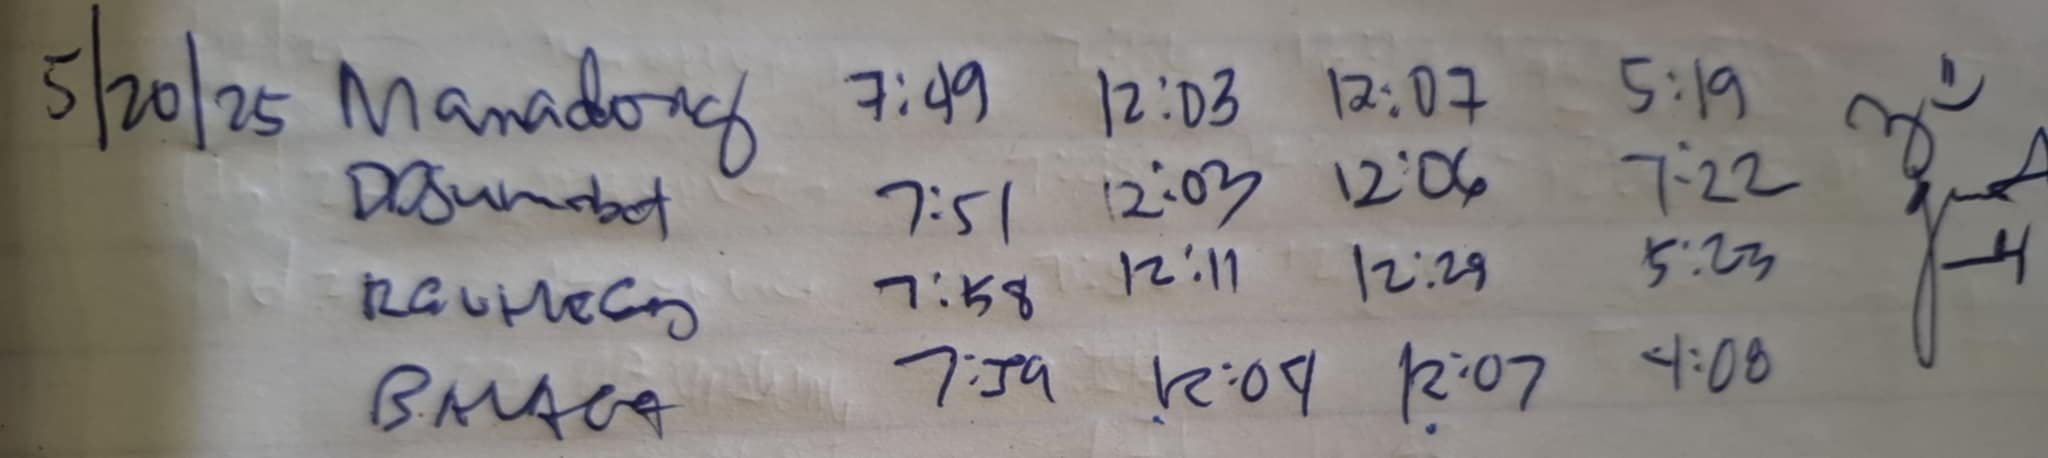 5/20/25 Manadong 7:49 12:03 12:07 5:19
DDSumabat 7:51 12:03 12:06 7:22
7:58 12:11 12:29 5:23
7:59 12:04 12:07 4:08